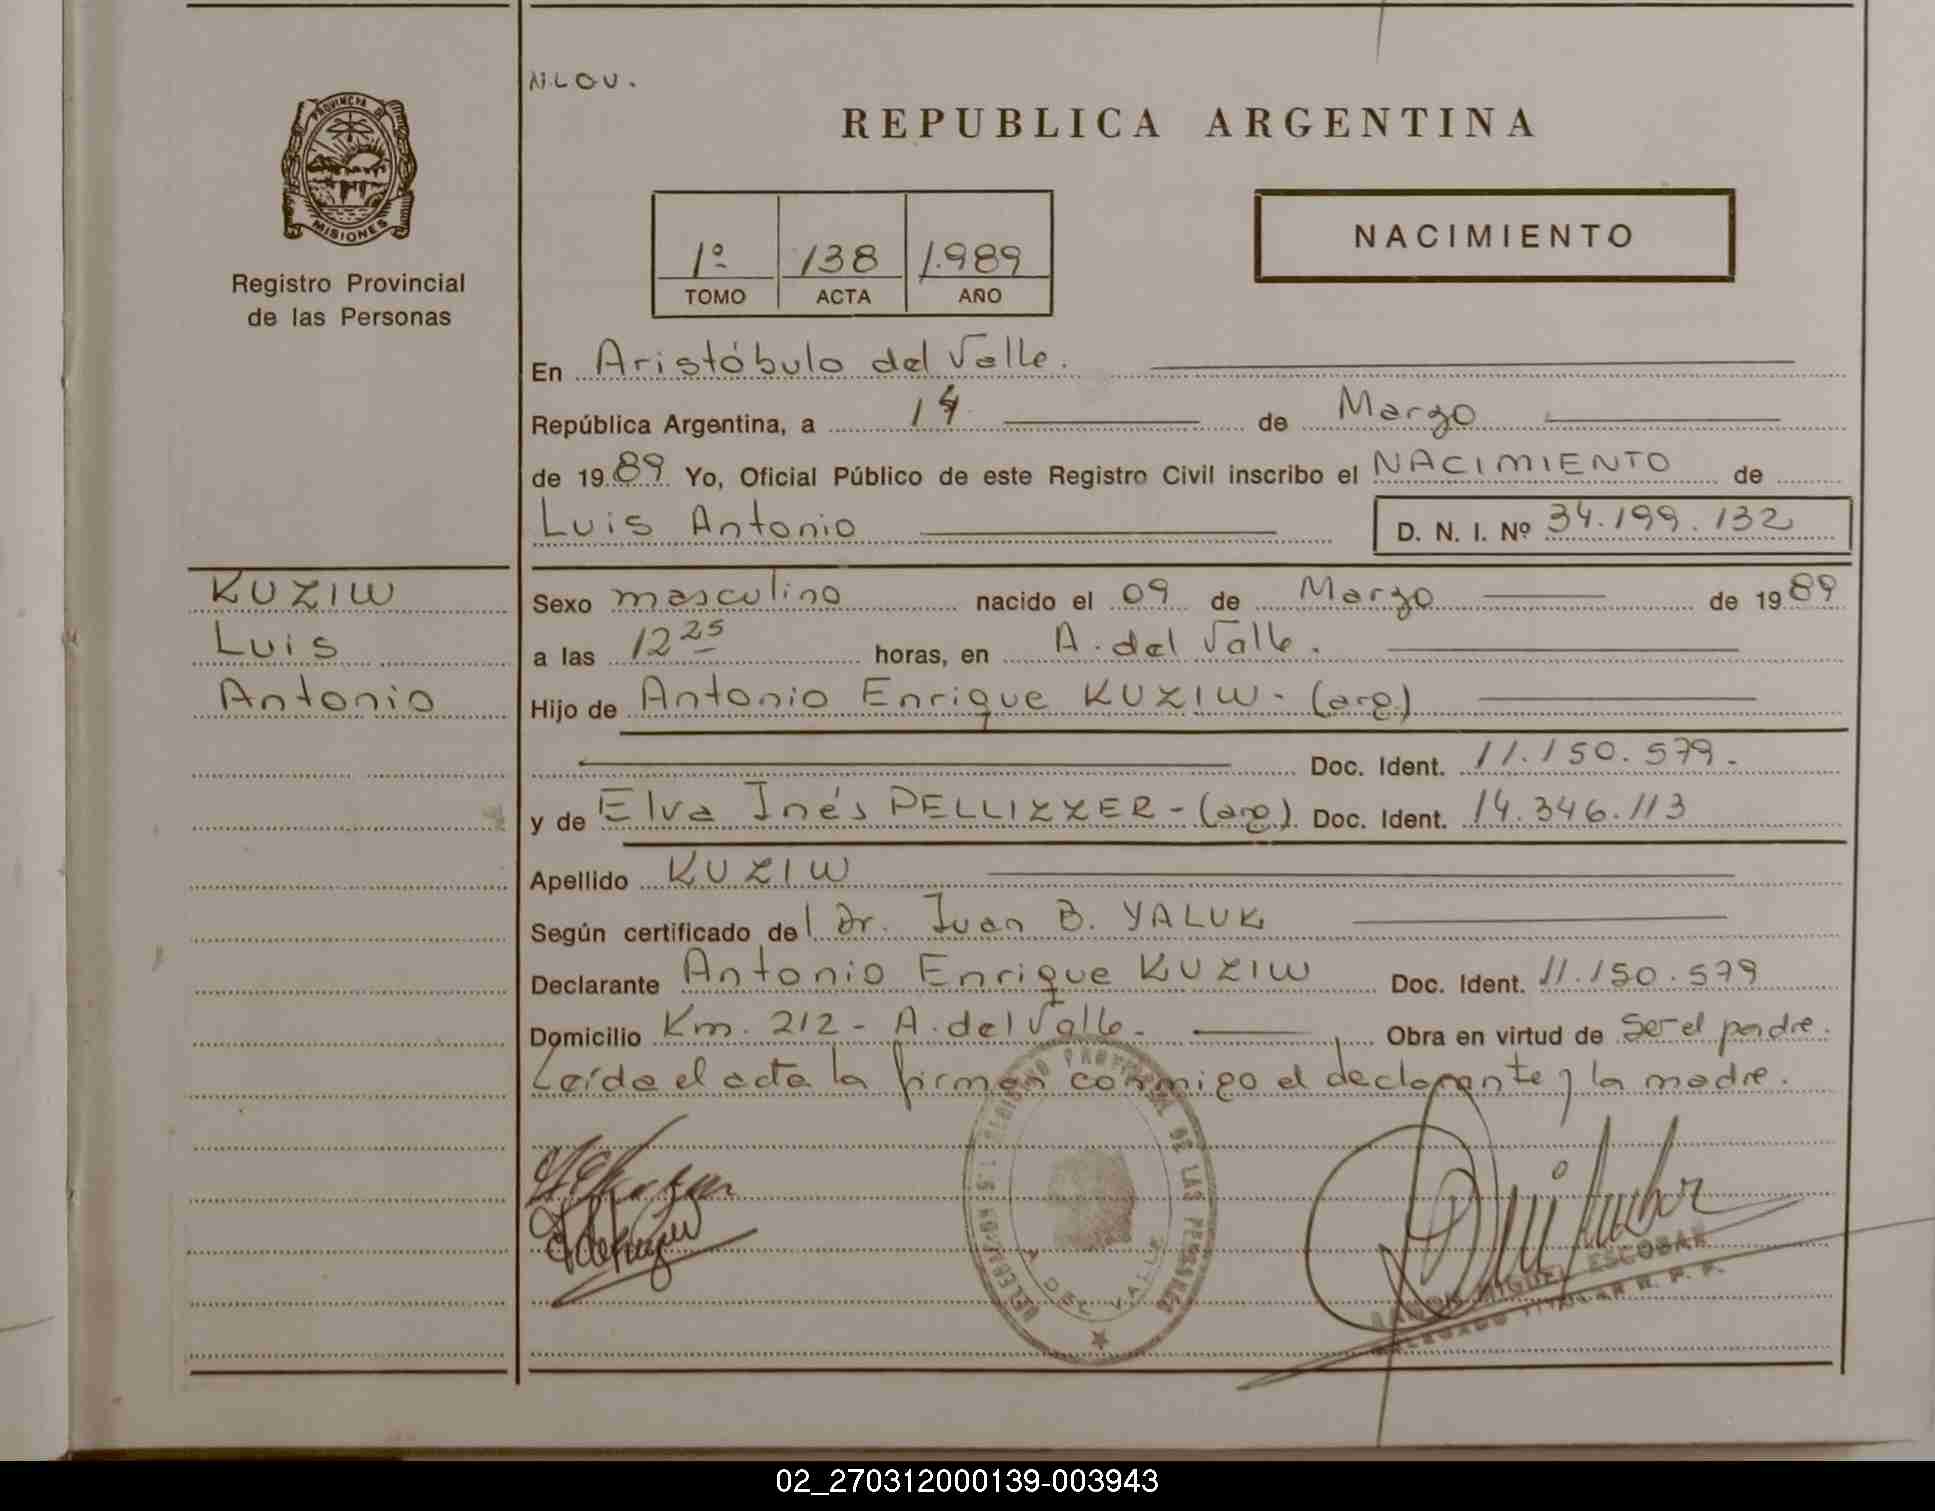 N.LOU.
REPUBLICA ARGENTINA
PROVINCIA DE
MISIONES
Registro Provincial
de las Personas
1º 138 1.989
TOMO ACTA AÑO
NACIMIENTO
En Aristóbulo del Valle.
República Argentina, a 14 de Marzo
de 1989 Yo, Oficial Público de este Registro Civil inscribo el NACIMIENTO de
Luis Antonio D. N. I. Nº 34.199.132
KUZIW
Luis
Antonio
Sexo masculino nacido el 09 de Marzo de 1989
a las 12 25 horas, en A. del Valle.
Hijo de Antonio Enrique KUZIW - (arg.)
Doc. Ident. 11.150.579.-
y de Elva Inés PELLIZZER - (arg) Doc. Ident. 14.346.113
Apellido KUZIW
Según certificado del Dr. Juan B. YALUK
Declarante Antonio Enrique KUZIW Doc. Ident. 11.150.579
Domicilio Km. 212 - A. del Valle. Obra en virtud de ser el padre.
Leída el acta la firman conmigo el declarante y la madre.
REGISTRO PROVINCIAL DE LAS PERSONAS
A. DEL VALLE
RAMON MIGUEL ESCOBAR
DELEGADO TITULAR R. P. P.
02_270312000139-003943